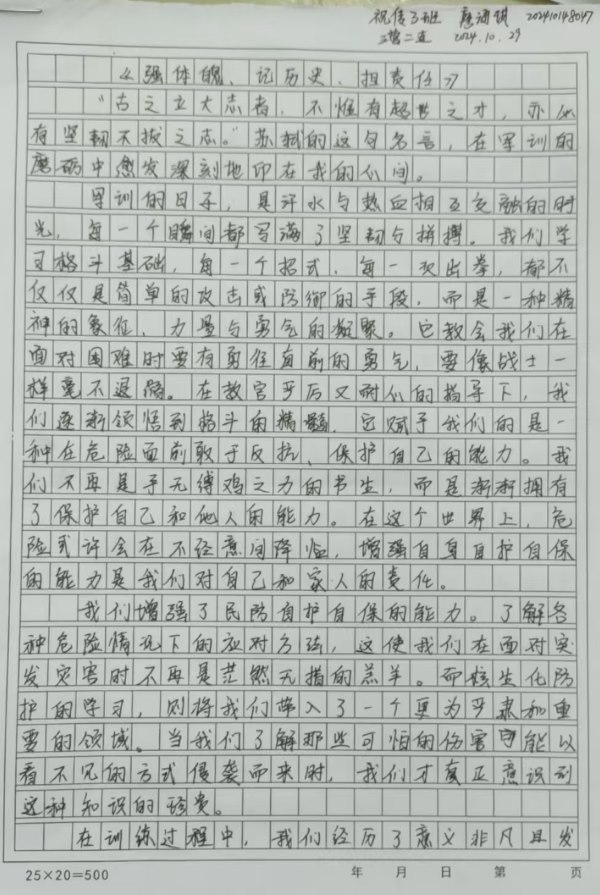 祝传3班 202410148047
三营二连 2024.10.29
《强体魄、记历史、担责任》
“古之立大志者，不惟有超世之才，亦必
有坚韧不拔之志。”苏轼的这句名言，在军训的
磨砺中愈发深刻地印在我的心间。
军训的日子，是汗水与热血相互交融的时
光，每一个瞬间都写满了坚韧与拼搏。我们学
习格斗基础，每一个招式，每一次出拳，都不
仅仅是简单的攻击或防御的手段，而是一种精
神的象征，力量与勇气的凝聚。它教会我们在
面对困难时要有勇往直前的勇气，要像战士一
样毫不退缩。在教官严厉又耐心的指导下，我
们逐渐领悟到格斗的精髓，它赋予我们的是一
种在危险面前敢于反抗、保护自己的能力。我
们不再是手无缚鸡之力的书生，而是渐渐拥有
了保护自己和他人的能力。在这个世界上，危
险或许会在不经意间降临，增强自身自护自保
的能力是我们对自己和家人的责任。
我们增强了民防自护自保的能力。了解各
种危险情况下的应对方法，这使我们在面对突
发灾害时不再是茫然无措的羔羊。而核生化防
护的学习，则将我们带入了一个更为严肃和重
要的领域。当我们了解那些可怕的伤害可能以
看不见的方式侵袭而来时，我们才真正意识到
这种知识的珍贵。
在训练过程中，我们经历了意义非凡且发
25×20=500 年 月 日 第 页